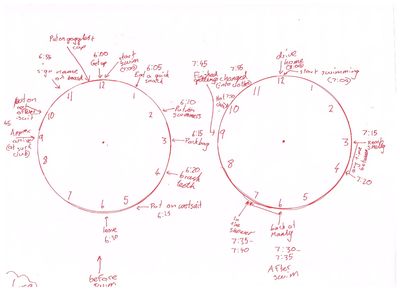 Put on goggles &
cap
6:00
Get up
start
swim
(7:00)
6:05
Eat a quick
snack
6:10
Put on
swimmers
6:15
Pack bag
6:20
brush
teeth
Put on wetsuit
6:25
leave
6:30
before
swim
45
Arrive
(at surf
club)
Put on
suit
6:55
sign name
on board
12
1
2
3
4
5
6
7
8
9
10
11
drive
home
start swimming
(7:00)
7:15
reach shelly
any time
between
7:20
Look at
Manly
7:30-
7:35
After
swim
In
the
shower
7:35-
7:40
7:45
Finished
getting changed
into clothes
12
1
2
3
4
5
6
7
8
9
10
11